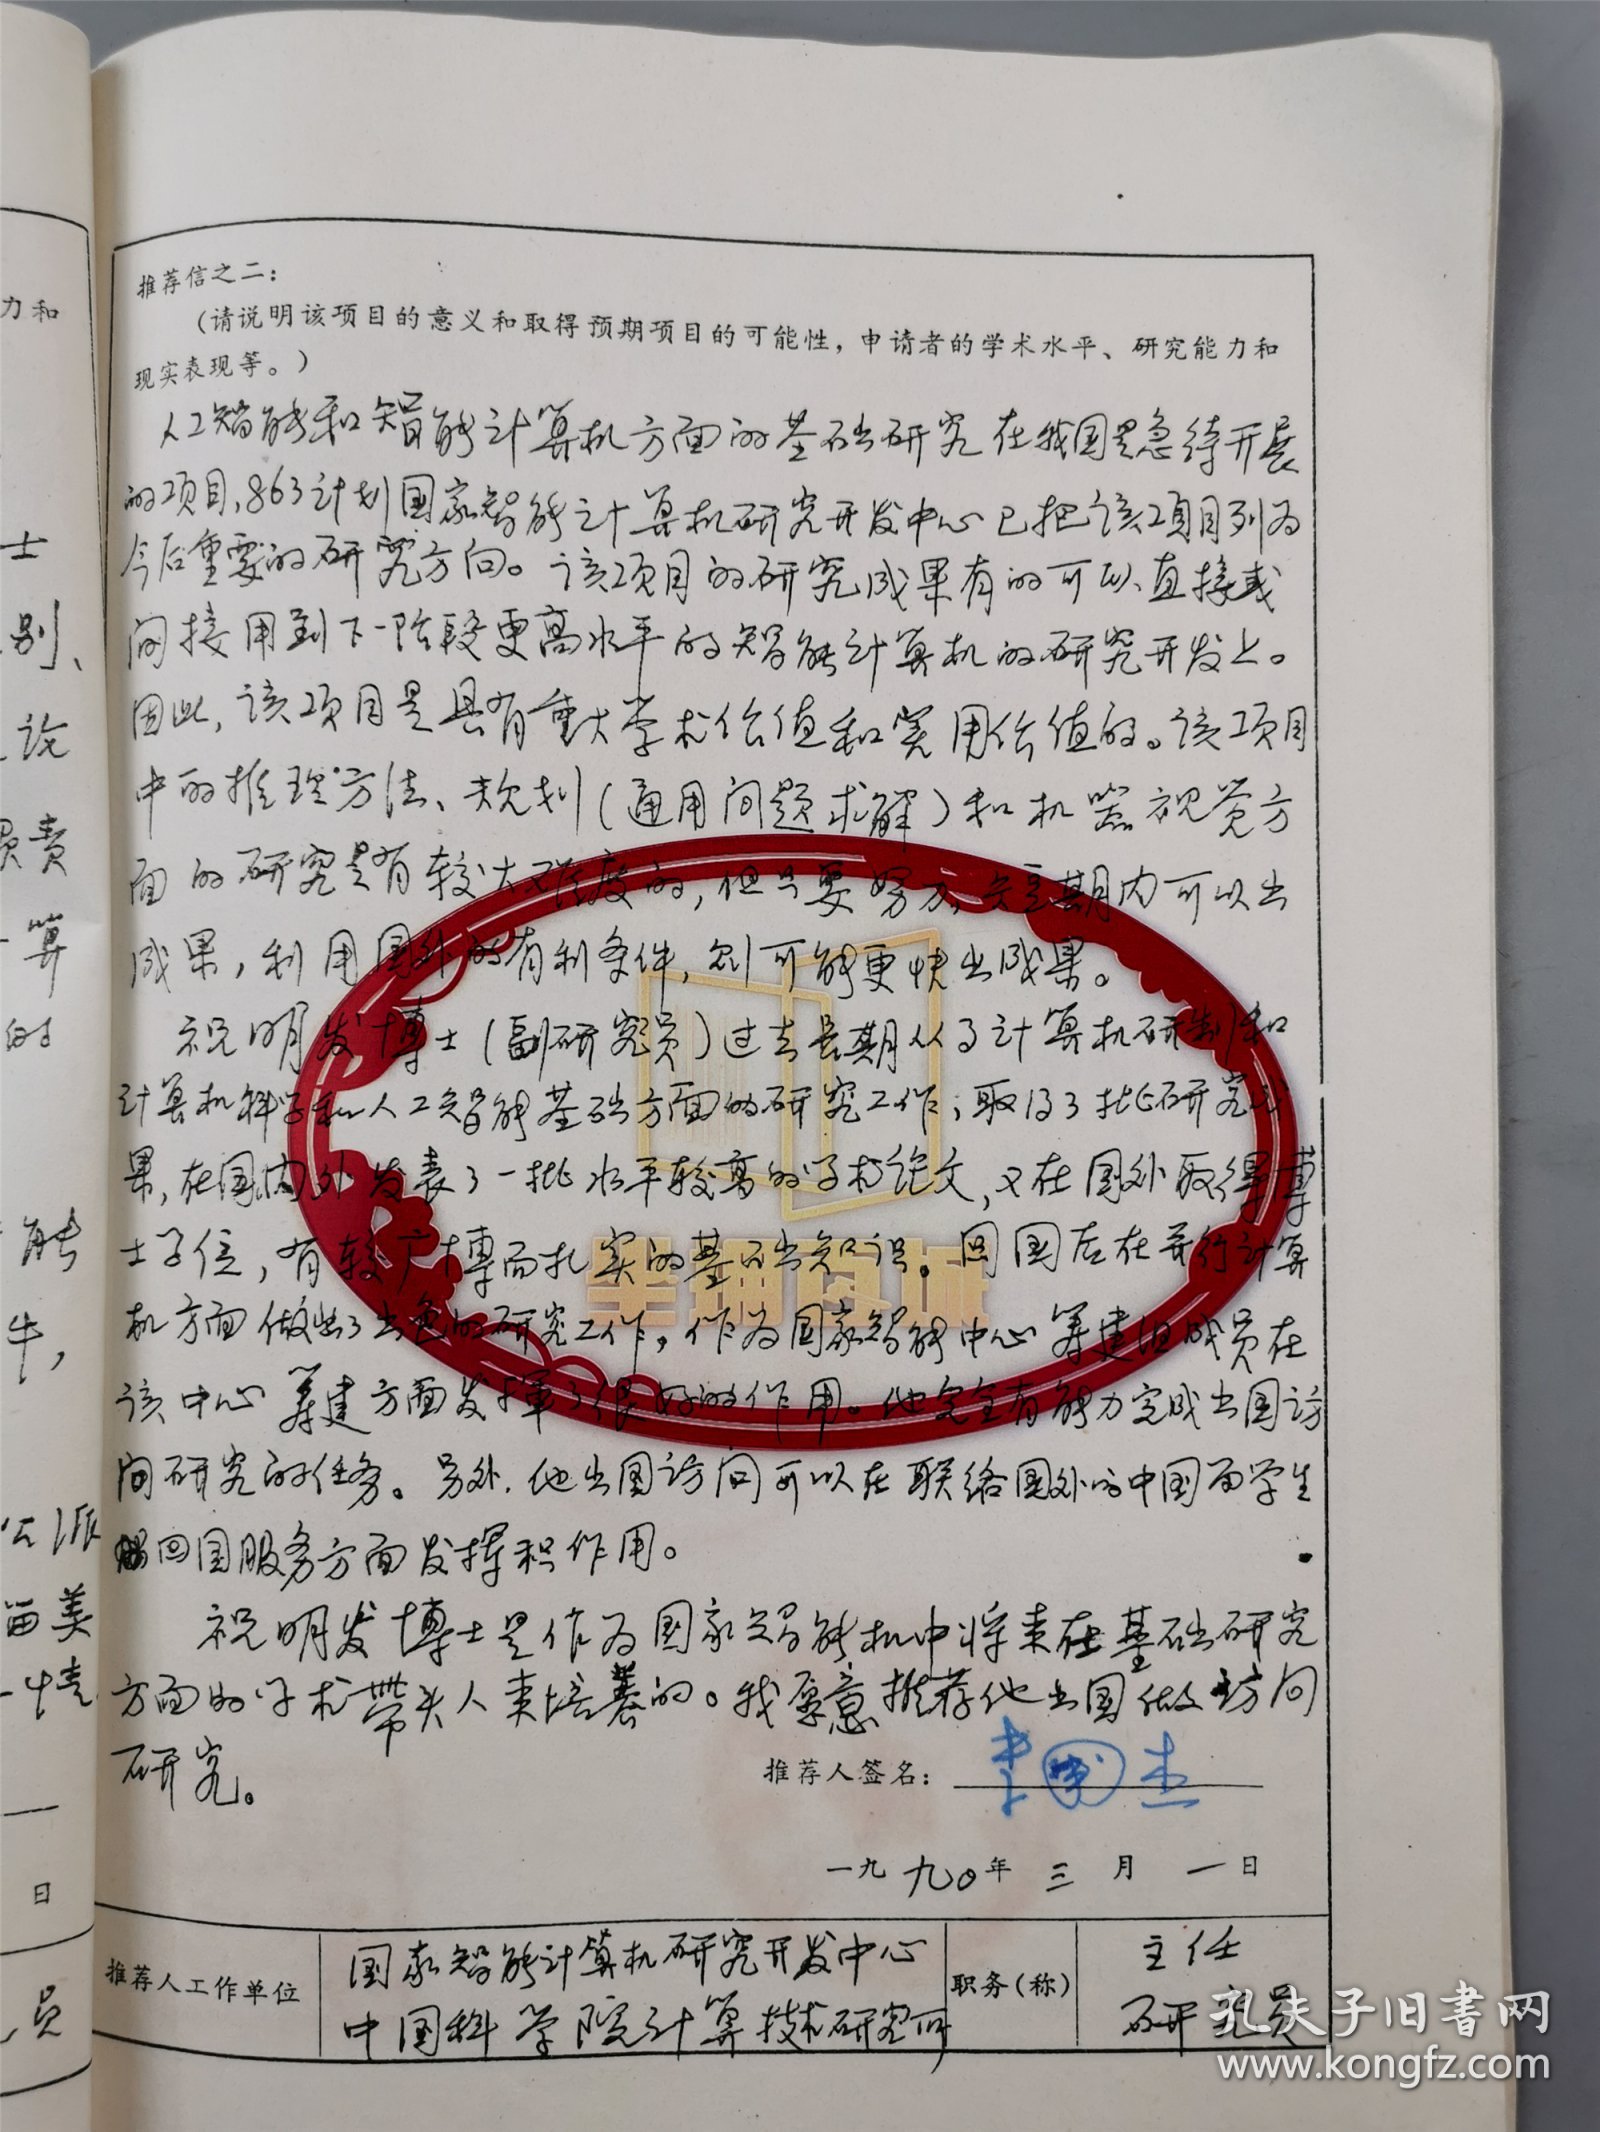 推荐信之二：
（请说明该项目的意义和取得预期项目的可能性，申请者的学术水平、研究能力和
现实表现等。）
人工智能和智能计算机方面的基础研究在我国是急待开展
的项目，863计划国家智能计算机研究开发中心已把该项目列为
今后重要的研究方向。该项目的研究成果有的可以直接或
间接用到下一阶段更高水平的智能计算机的研究开发上。
因此，该项目是具有重大学术价值和实用价值的。该项目
中的推理方法、规划（通用问题求解）和机器视觉方
面的研究是有较大难度的，但只要努力，定期内可以出
成果，利用国外的有利条件，则可能更快出成果。
祝明发博士（副研究员）过去长期从事计算机研制和
计算机科学和人工智能基础方面的研究工作，取得了批研究成
果，在国内外发表了一批水平较高的学术论文，又在国外取得博
士学位，有较广博而扎实的基础知识。回国后在并行计算
机方面做出了出色的研究工作，作为国家智能中心筹建组成员在
该中心筹建方面发挥了很好的作用。他完全有能力完成出国访
问研究的任务。另外，他出国访问可以在联络国外的中国留学生
回国服务方面发挥积作用。
祝明发博士是作为国家智能机中将来在基础研究
方面的学术带头人来培养的。我愿意推荐他出国做访问
研究。
推荐人签名：李国杰
一九九〇年三月一日
推荐人工作单位
国家智能计算机研究开发中心
中国科学院计算技术研究所
职务（称）
主任
研究员
力和
士
别、
论
负责
算
的
能
牛，
公派
留美
情
日
员
华翔书城
孔夫子旧书网
www.kongfz.com